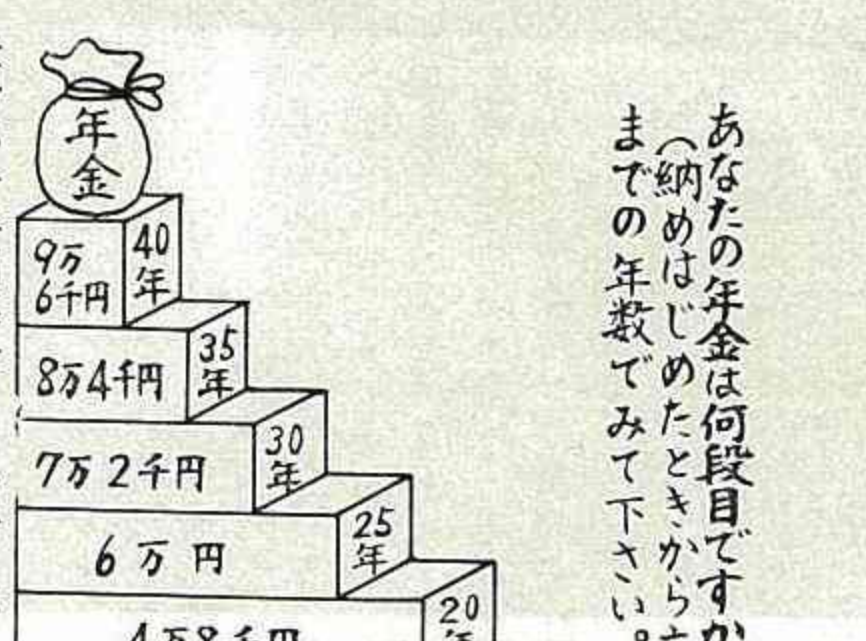 あなたの年金は何段目ですか
（納めはじめたときから
までの年数でみて下さい。
年金
40年
9万6千円
35年
8万4千円
30年
7万2千円
25年
6万円
20年
4万8千円